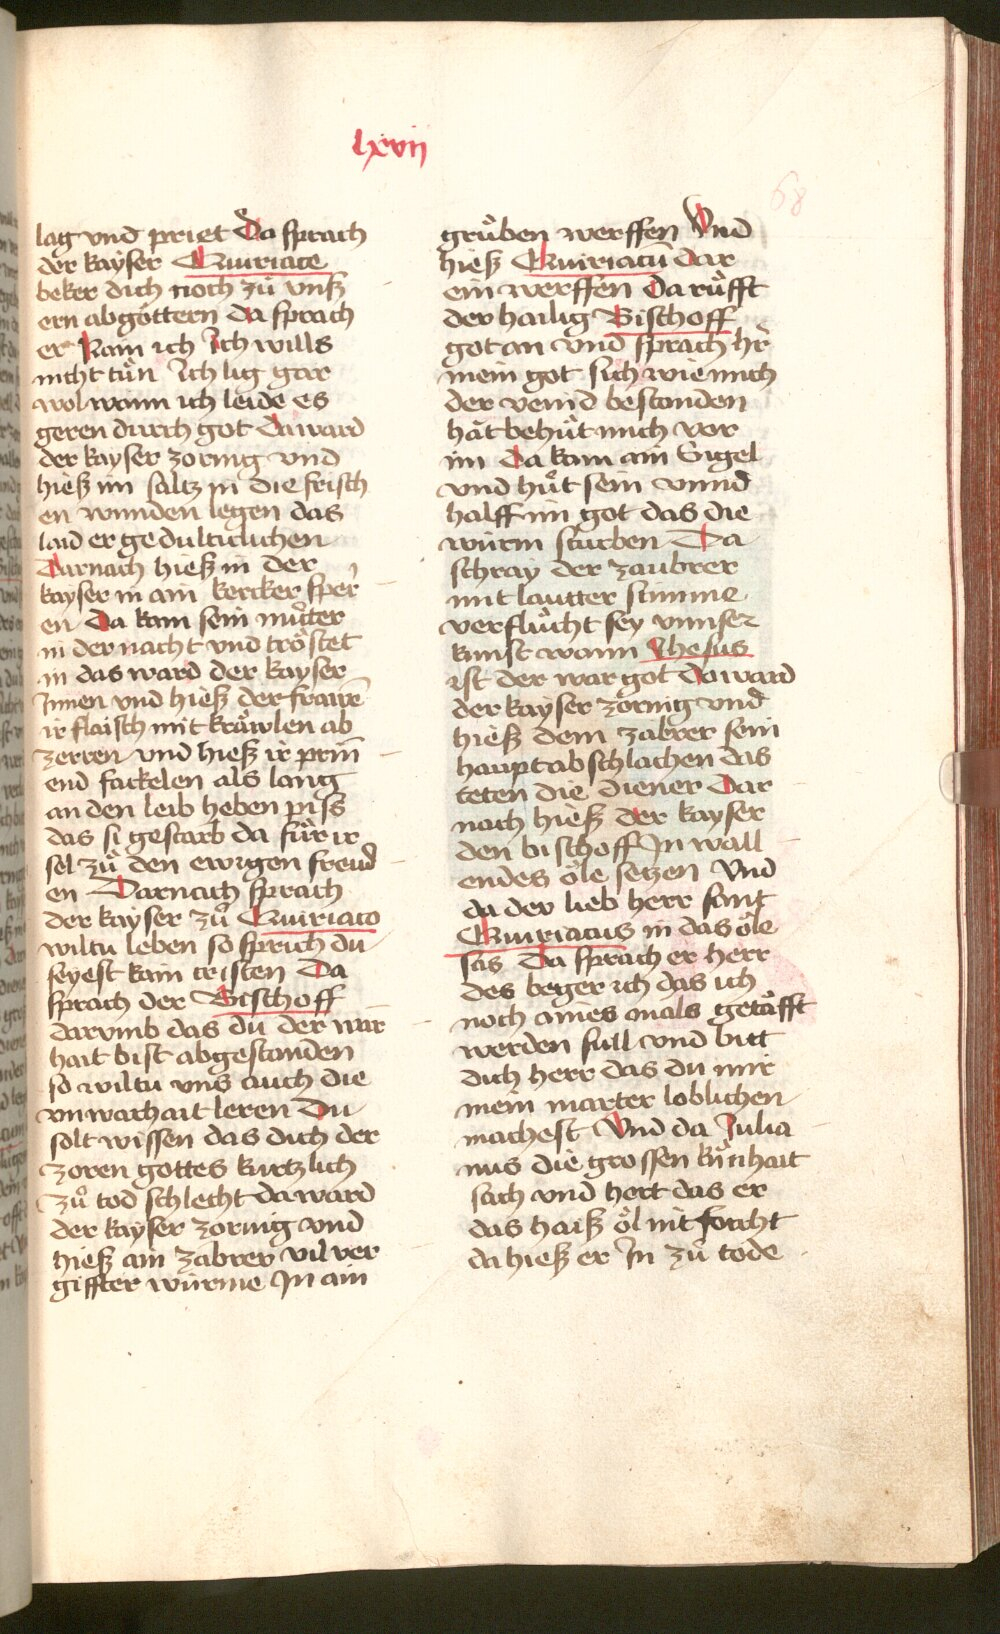 lxvii
68
lag vnd priet Da sprach
der kayser Quiriace
beker dich noch zů vnß
ern abgöttern da sprach
er Nain ich Ich wills
nicht tůn Ich lig gar
wol wann ich leide es
geren durch got Da ward
der kayser zornig vnd
hieß im saltz in die frisch
en wunden legen das
laid er gedulticlichen
Darnach hieß in der
kayser in ain kercker sper
en Da kam sein můtter
in der nacht vnd tröstet
in das ward der kayser
Innen vnd hieß der frawē
ir flaisch mit kräwlen ab
zerren vnd hieß ir prin̄
end fackelen als lang
an den leib heben piss
das si gestarb da fůr ir
sel zů den ewigen freud
en Darnach sprach
der kayser zů Quiriaco
wiltu leben so sprich du
seyest kain cristen Da
sprach der Bischoff
darvmb das du der war
hait bist abgestanden
so wiltu vns auch die
vnwarhait leren Du
solt wissen das dich der
zoren gottes kurtzlich
zů tod schlecht da ward
der kayser zornig vnd
hieß ain zabrer vil ver
giffter würme In ain
grůben werffen Vnd
hieß Quiriacū dar
ein werffen Da růfft
der hailig Bischoff
got an vnd sprach hr̄
mein got sich wie mich
der veind bestanden
hät behůt mich vor
im Da kam ain Engel
vnd hůt sein vnnd
halff im got das die
würm sturben Da
schray der zaubrer
mit lautter stimme
verflůcht sey vnnser
kunst wann Jhesus
ist der war got Da ward
der kayser zornig vnd
hieß dem zabrer sein
haupt ab schlachen das
teten die diener Dar
nach hieß der kayser
den bischoff In wall
endes öle setzen Vnd
da der lieb herr sant
Quiriacus in das öle
sas Da sprach er herr
des beger ich das ich
noch aines mals getäfft
werden sull vnd bitt
dich herr das du mir
mein marter loblichen
machest Vnd da Julia
nus die grossen kůnhait
sach vnd hort das er
das haiß öl nit forcht
da hieß er In zů tode